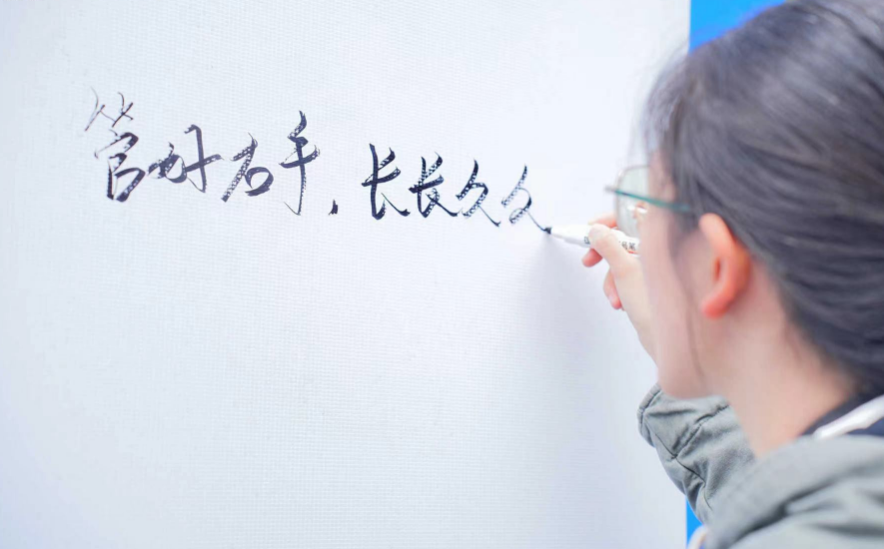 管好右手,长长久久